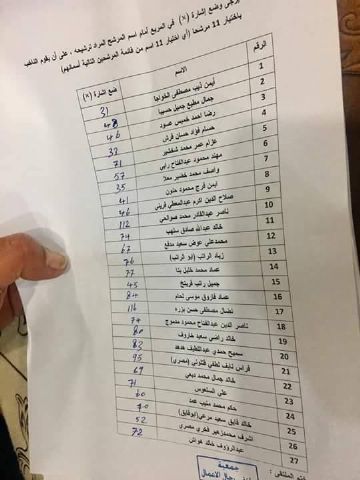 يرجى وضع إشارة (×) في المربع أمام اسم المرشح المراد ترشيحه ، على أن يقوم الناخب
باختيار 11 مرشحا (أي اختيار 11 اسم من قائمة المرشحين التالية أسمائهم)
الرقم الاسم ضع إشارة (×)
1 أيمن نجيب مصطفى الخواجا 31
2 جمال مطيع جميل حسيبا
3 رضا أحمد خميس عبود 46
4 حسام فؤاد حسان قرش
5 عزام عمر محمد شخشير 32
6 مهند محمود عبدالفتاح رابي 71
7 واصف محمد خضير معلا 57
8 أيمن فرج محمود حنون 35
9 صلاح الدين أكرم عبدالمعطي قريني 41
10 ناصر عبدالقادر محمد صوالحي 46
11 خالد عبدالله صادق سلهب 112
12 محمدعلي عوض سعيد مدفع 74
13 زياد الراتب (أبو الراتب) 67
14 عماد محمد خليل بتا 76
15 جميل راتب فريتخ 77
16 عماد فاروق موسى لحام 45
17 نضال مصطفى حسن بزره 84
18 ناصر الدين عبدالفتاح محمود مدموج 116
19 خالد راضي سعيد خاروف 74
20 سميح حمدي عبداللطيف هدهد 80
21 فراس نايف لطفي قتلوني (مصري) 82
22 خالد جمال محمد ديعي 95
23 علي السلعوس 69
24 حكم محمد منيب عمد 71
25 خالد فايق سعيد مرعي(ابوفايق) 60
26 أشرف محمدزهير فخري مصري 70
27 عبدالرؤوف خالد هواش 52
72
فتح الملتقى :
جمعية
رجال الاعمال